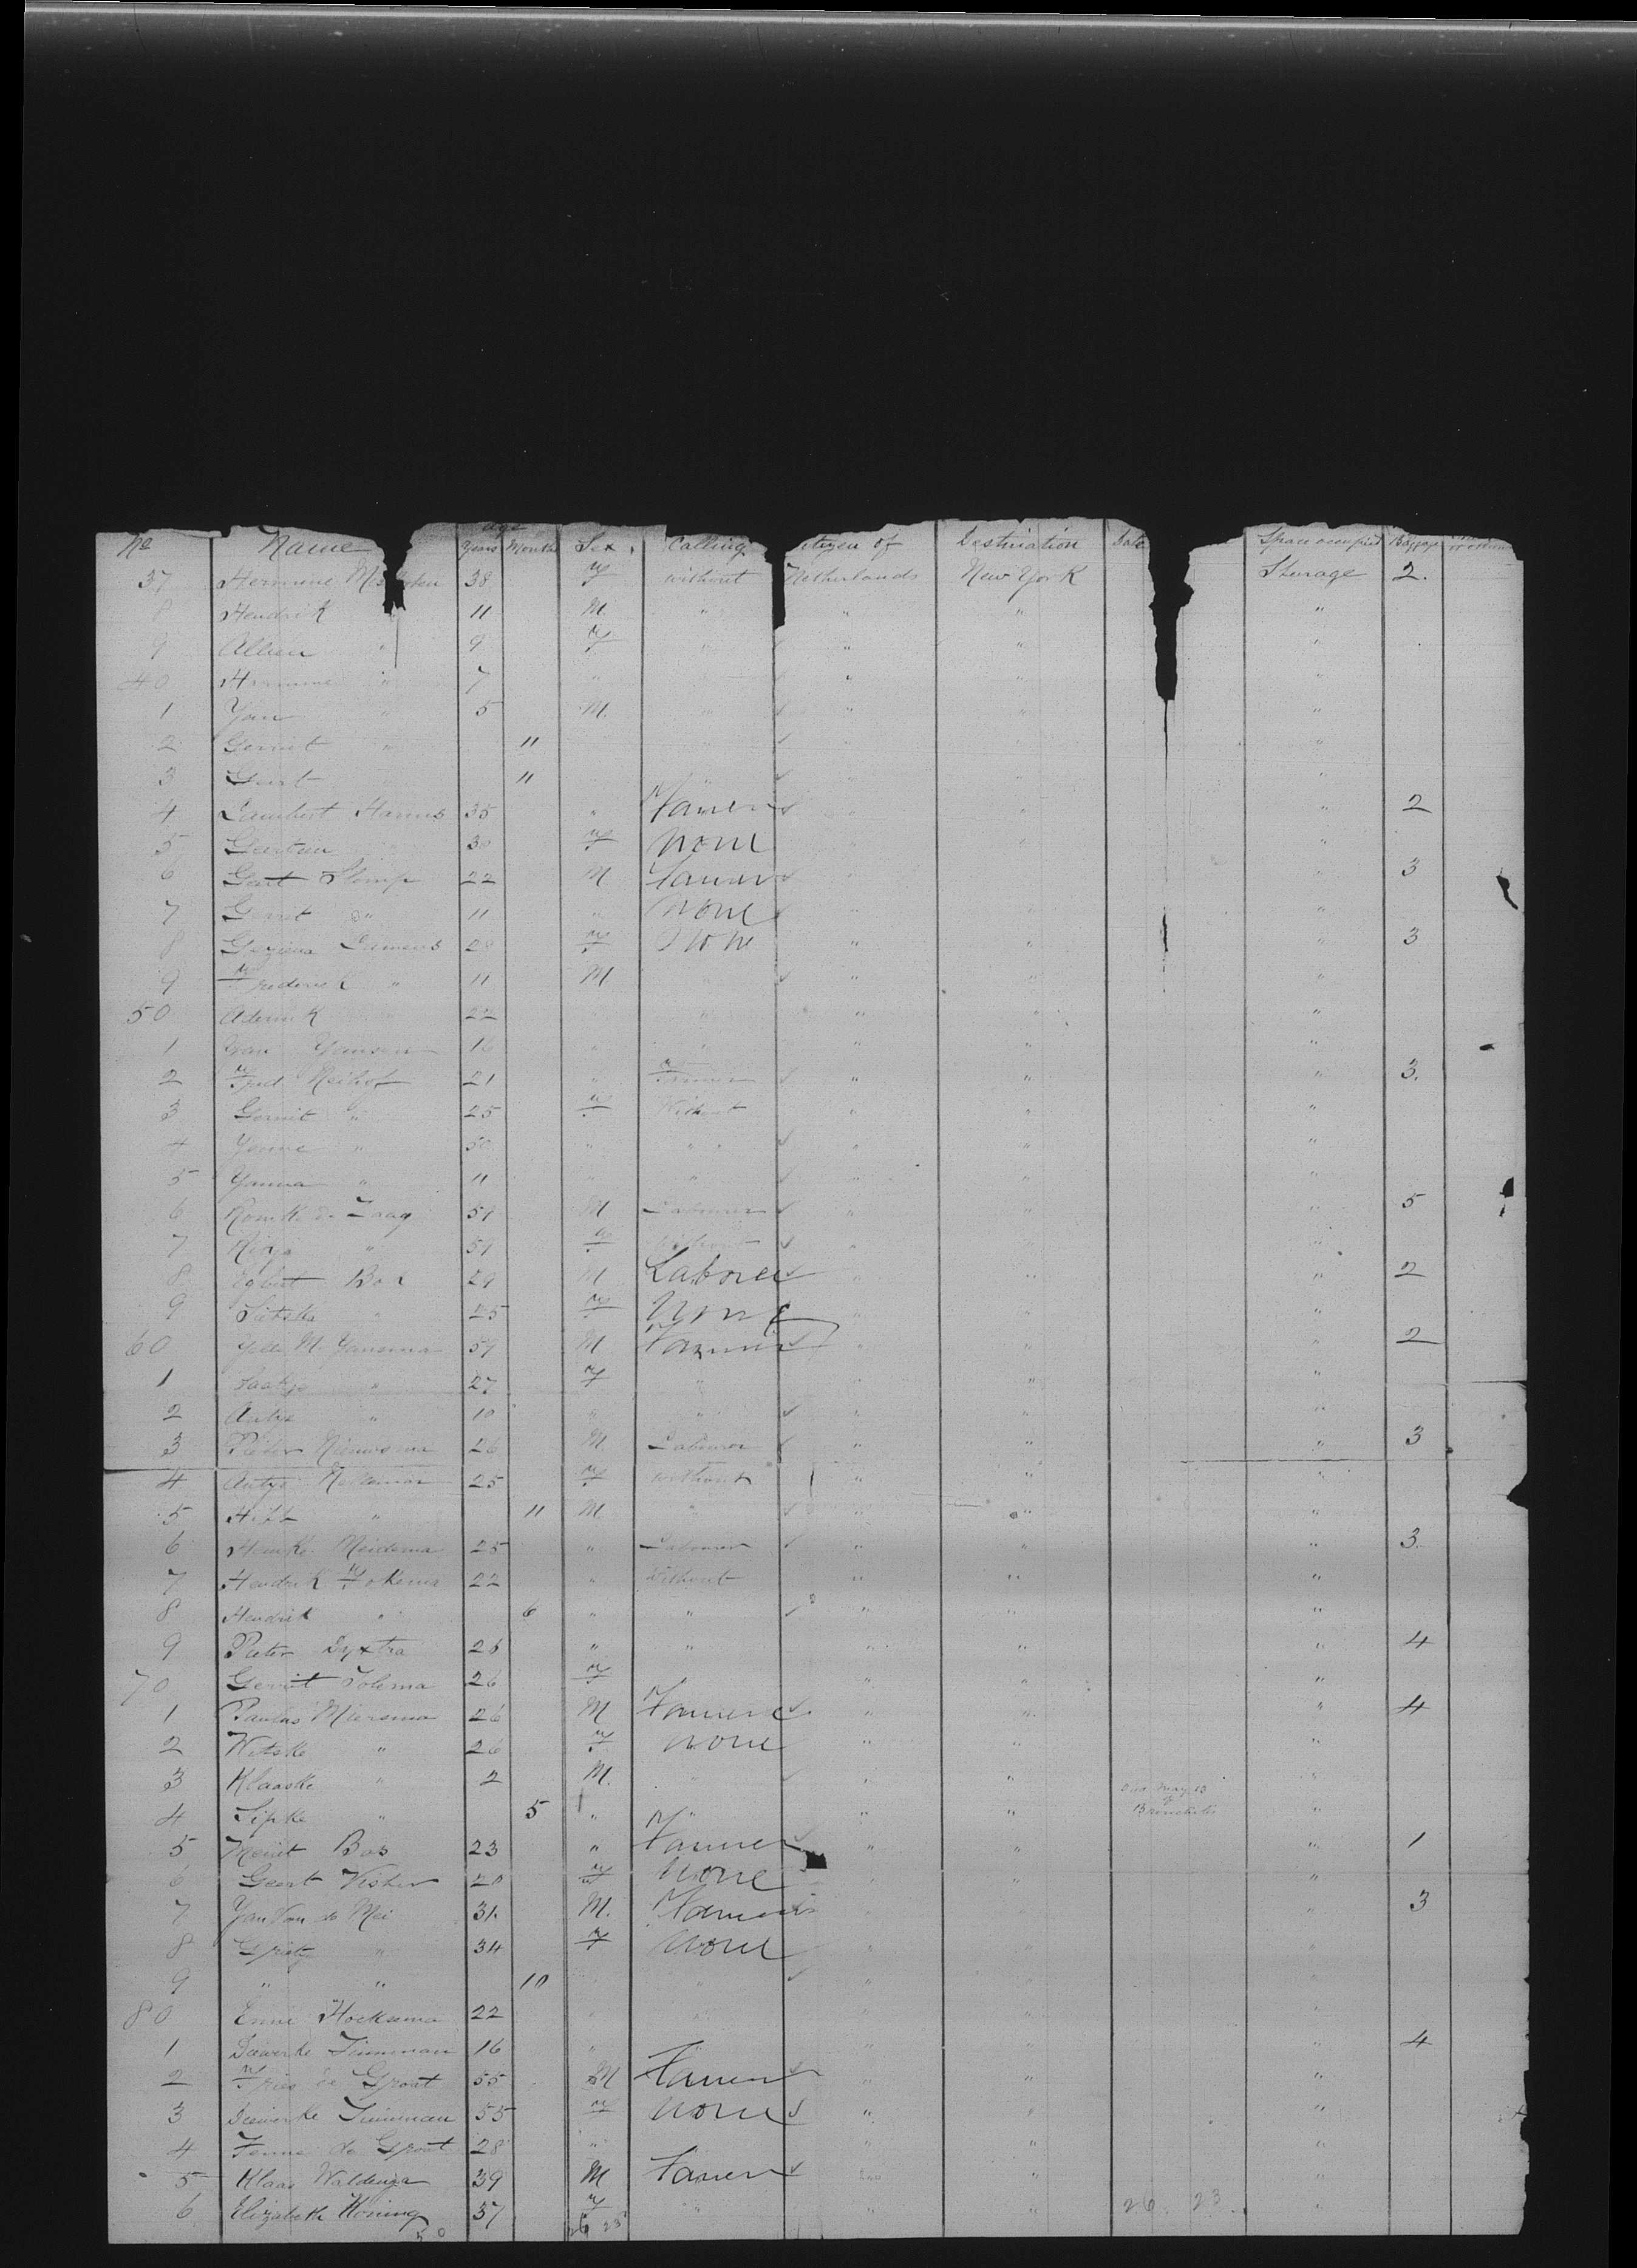 age
No Name Years Months Sex Calling Citizen of Destination Date Space occupied Baggage
37 Hermine 38 F without Netherlands New York Steerage 2.
8 Hendrik 11 M " " " "
9 Allien " 9 F " " " "
40 Hermine " 7 " " " "
1 Yan " 5 M. " " " "
2 Gerrit " 11 " " "
3 Geert 11 " "
4 Lambert Harms 35 " Farmer " " " 2
5 Geertien 30 F None " "
6 Geert Stomp 22 M Farmer " " 3
7 Gerrit " 11 " None " "
8 Geziena 28 F None " " " 3
9 Frederik " 11 M " " " "
50 22 " " " "
1 Yan Yansen 16 " " " " "
2 Fred Neihof 21 " Farmer " " " 3.
3 Gerrit " 25 F Without " " "
4 " 50 " " " " "
5 Yanna " 11 " " " " "
6 de Zaag 59 M Labourer " " " 5
7 " 59 F without " "
8 Egbert Bos 29 M Laborer " " " 2
9 Sietske " 25 F None " "
60 Yelle M. Yansma 59 M Farmer " " " 2
1 " 27 F " " " "
2 " 10 " " " " "
3 Pieter Nieuwsma 26 M. Labourer " " " 3
4 Antje 25 F without " " "
5 " 11 M " " " "
6 Meidema 25 " Labourer " " " 3.
7 Hendrik Fokema 22 " Without " " "
8 Hendrik " 6 " " " " "
9 Pieter Dyxtra 25 " " " " " 4
70 Gerrit 26 F " " "
1 Paulus Miersma 26 M Farmer " " " 4
2 Witske " 26 F None " " "
3 Klaaske " 2 M. " " " died May 13 "
4 Sipke " 5 " " " " of Bronchitis "
5 Meint Bos 23 " Farmer " " " 1
6 Geert Visher 20 F None " " "
7 Yan Van de Mei 31. M. Farmer " 3
8 Grietje " 34 F None " "
9 " " 10 " " " "
80 Enne Hoeksema 22 " " " "
1 Dieverke Timmerman 16 " " " " " 4
2 Fries de Groot 55 M Farmer " " "
3 Dieverke Timmerman 55 F None " " "
4 Fenne de Groot 28 " " " "
5 Klaas Waldenga 39 M Farmer " " "
6 Elizabeth Koning 37 F " " " 26. 23. "
50 26 23